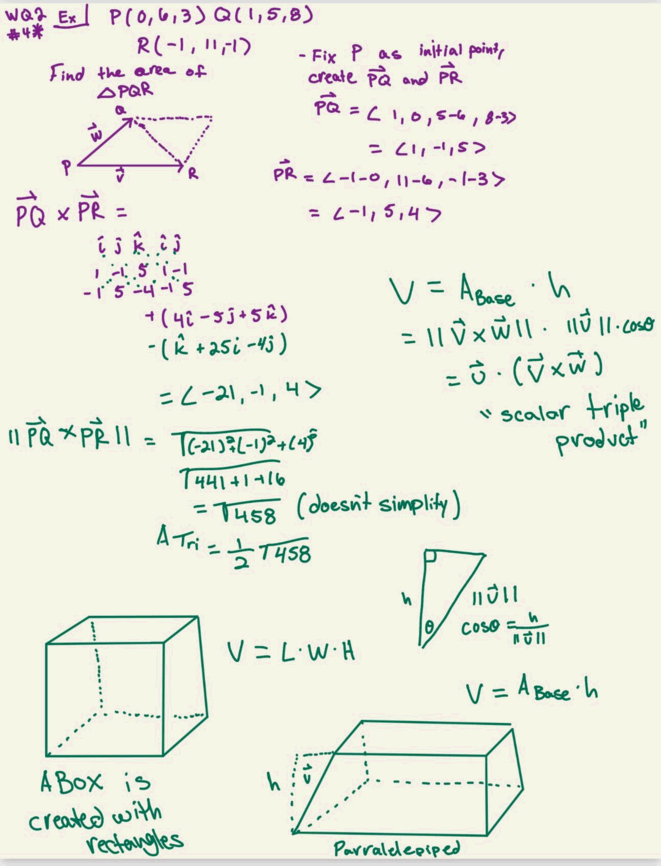 WQ2 Ex 1 P(0,6,3) Q(1,5,8)
#4* R(-1, 11,-1)
Find the area of
△PQR
Q
w⃗
P v⃗ R
- Fix P as initial point,
create P⃗Q and P⃗R
P⃗Q = < 1, 0, 5-6, 8-3>
= <1, -1, 5>
P⃗R = <-1-0, 11-6, -1-3>
= <-1, 5, 4>
P⃗Q × P⃗R =
î ĵ k̂ î ĵ
1 -1 5 1 -1
-1 5 -4 -1 5
+(4î - 5ĵ + 5k̂)
-(k̂ + 25î - 4ĵ)
= <-21, -1, 4>
||P⃗Q × P⃗R|| = √(-21)²+(-1)²+(4)²
√441+1+16
= √458 (doesn't simplify)
A Tri = 1/2 √458
V = A Base · h
= ||v⃗ × w⃗|| · ||u⃗|| · cosθ
= u⃗ · (v⃗ × w⃗)
"scalar triple
product"
h θ ||u⃗||
cosθ = h/||u⃗||
V = L·W·H
V = A Base · h
A Box is
created with
rectangles
h u⃗
Parralelepiped